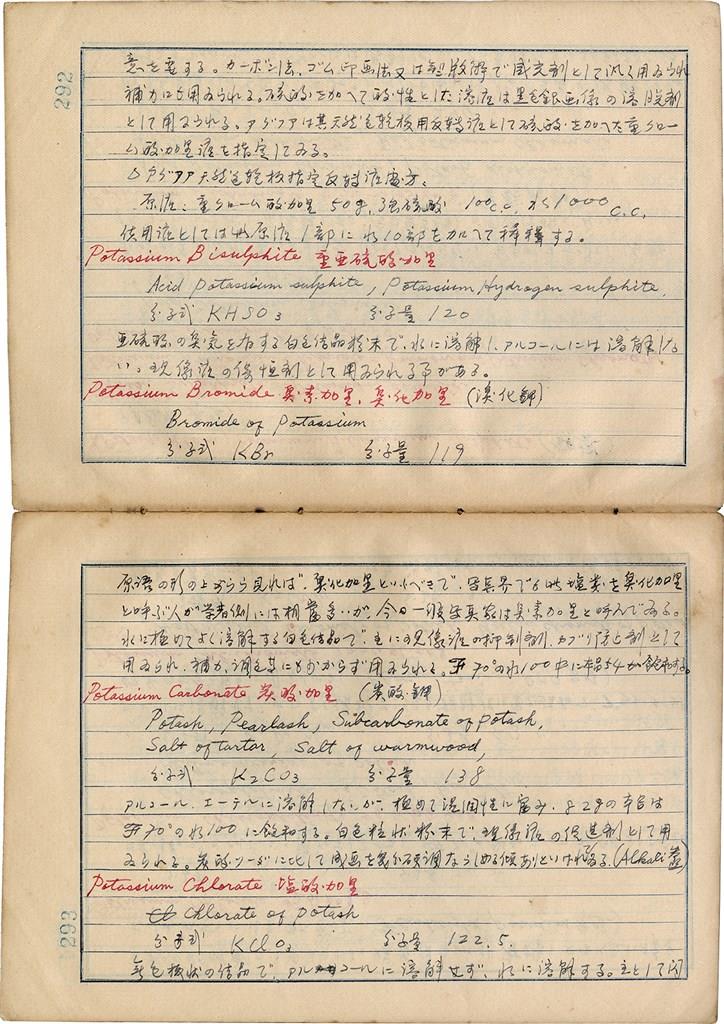 292
意を要する。カーボン法、ゴム印画法又は型取解で感光剤として汎く用ゐられ
補力にも用ゐられる。硫酸を加へて酸性とした溶液は黒色銀画像の溶脱剤
として用ゐられる。アグファは其天然色乾板用反転液として硫酸を加へた重クロー
ム酸加里液を指定してゐる。
アグファ天然色乾板指定反転液処方、
原液: 重クローム酸加里 50g, 強硫酸 100c.c. 水 1000 c.c.
使用液としては此原液1部に水10部を加へて稀釋する。
Potassium Bisulphite 重亜硫酸加里
Acid potassium sulphite, Potassium Hydrogen sulphite,
分子式 KHSO3 分子量 120
亜硫酸の臭気を有する白色結晶粉末で、水に溶解し、アルコールには溶解しな
い。現像液の保恒剤として用ゐられる事がある。
Potassium Bromide 臭素加里, 臭化加里 (溴化鉀)
Bromide of Potassium
分子式 KBr 分子量 119
原語の形の上からら見れば、臭化加里といふべきで、写真界でも此塩類を臭化加里
と呼ぶ人が学者側には相當多いが、今日一般写真家は臭素加里と呼んでゐる。
水に極めてよく溶解する白色結晶で主に現像液の抑制剤、カブリ防止剤として
用ゐられ、補力、調色等にも少からず用ゐられる。 70°の水100中に本品54が飽和する。
Potassium Carbonate 炭酸加里 (炭酸鉀)
Potash, Pearlash, Subcarbonate of potash,
Salt of tartar, Salt of wormwood,
分子式 K2CO3 分子量 138
アルコール、エーテルに溶解しないが、極めて湿潤性に富み、 の本品は
70°の水100に飽和する。白色粒状粉末で、現像液の促進剤として用
ゐられる。炭酸ソーダに比して感画を幾分硬調ならしめる傾ありといはれる (Alkali 表)
Potassium Chlorate 塩酸加里
Chlorate of potash
分子式 KClO3 分子量 122.5.
無色板状の結晶で、アルコールに溶解せず、水に溶解する。主として閃
293